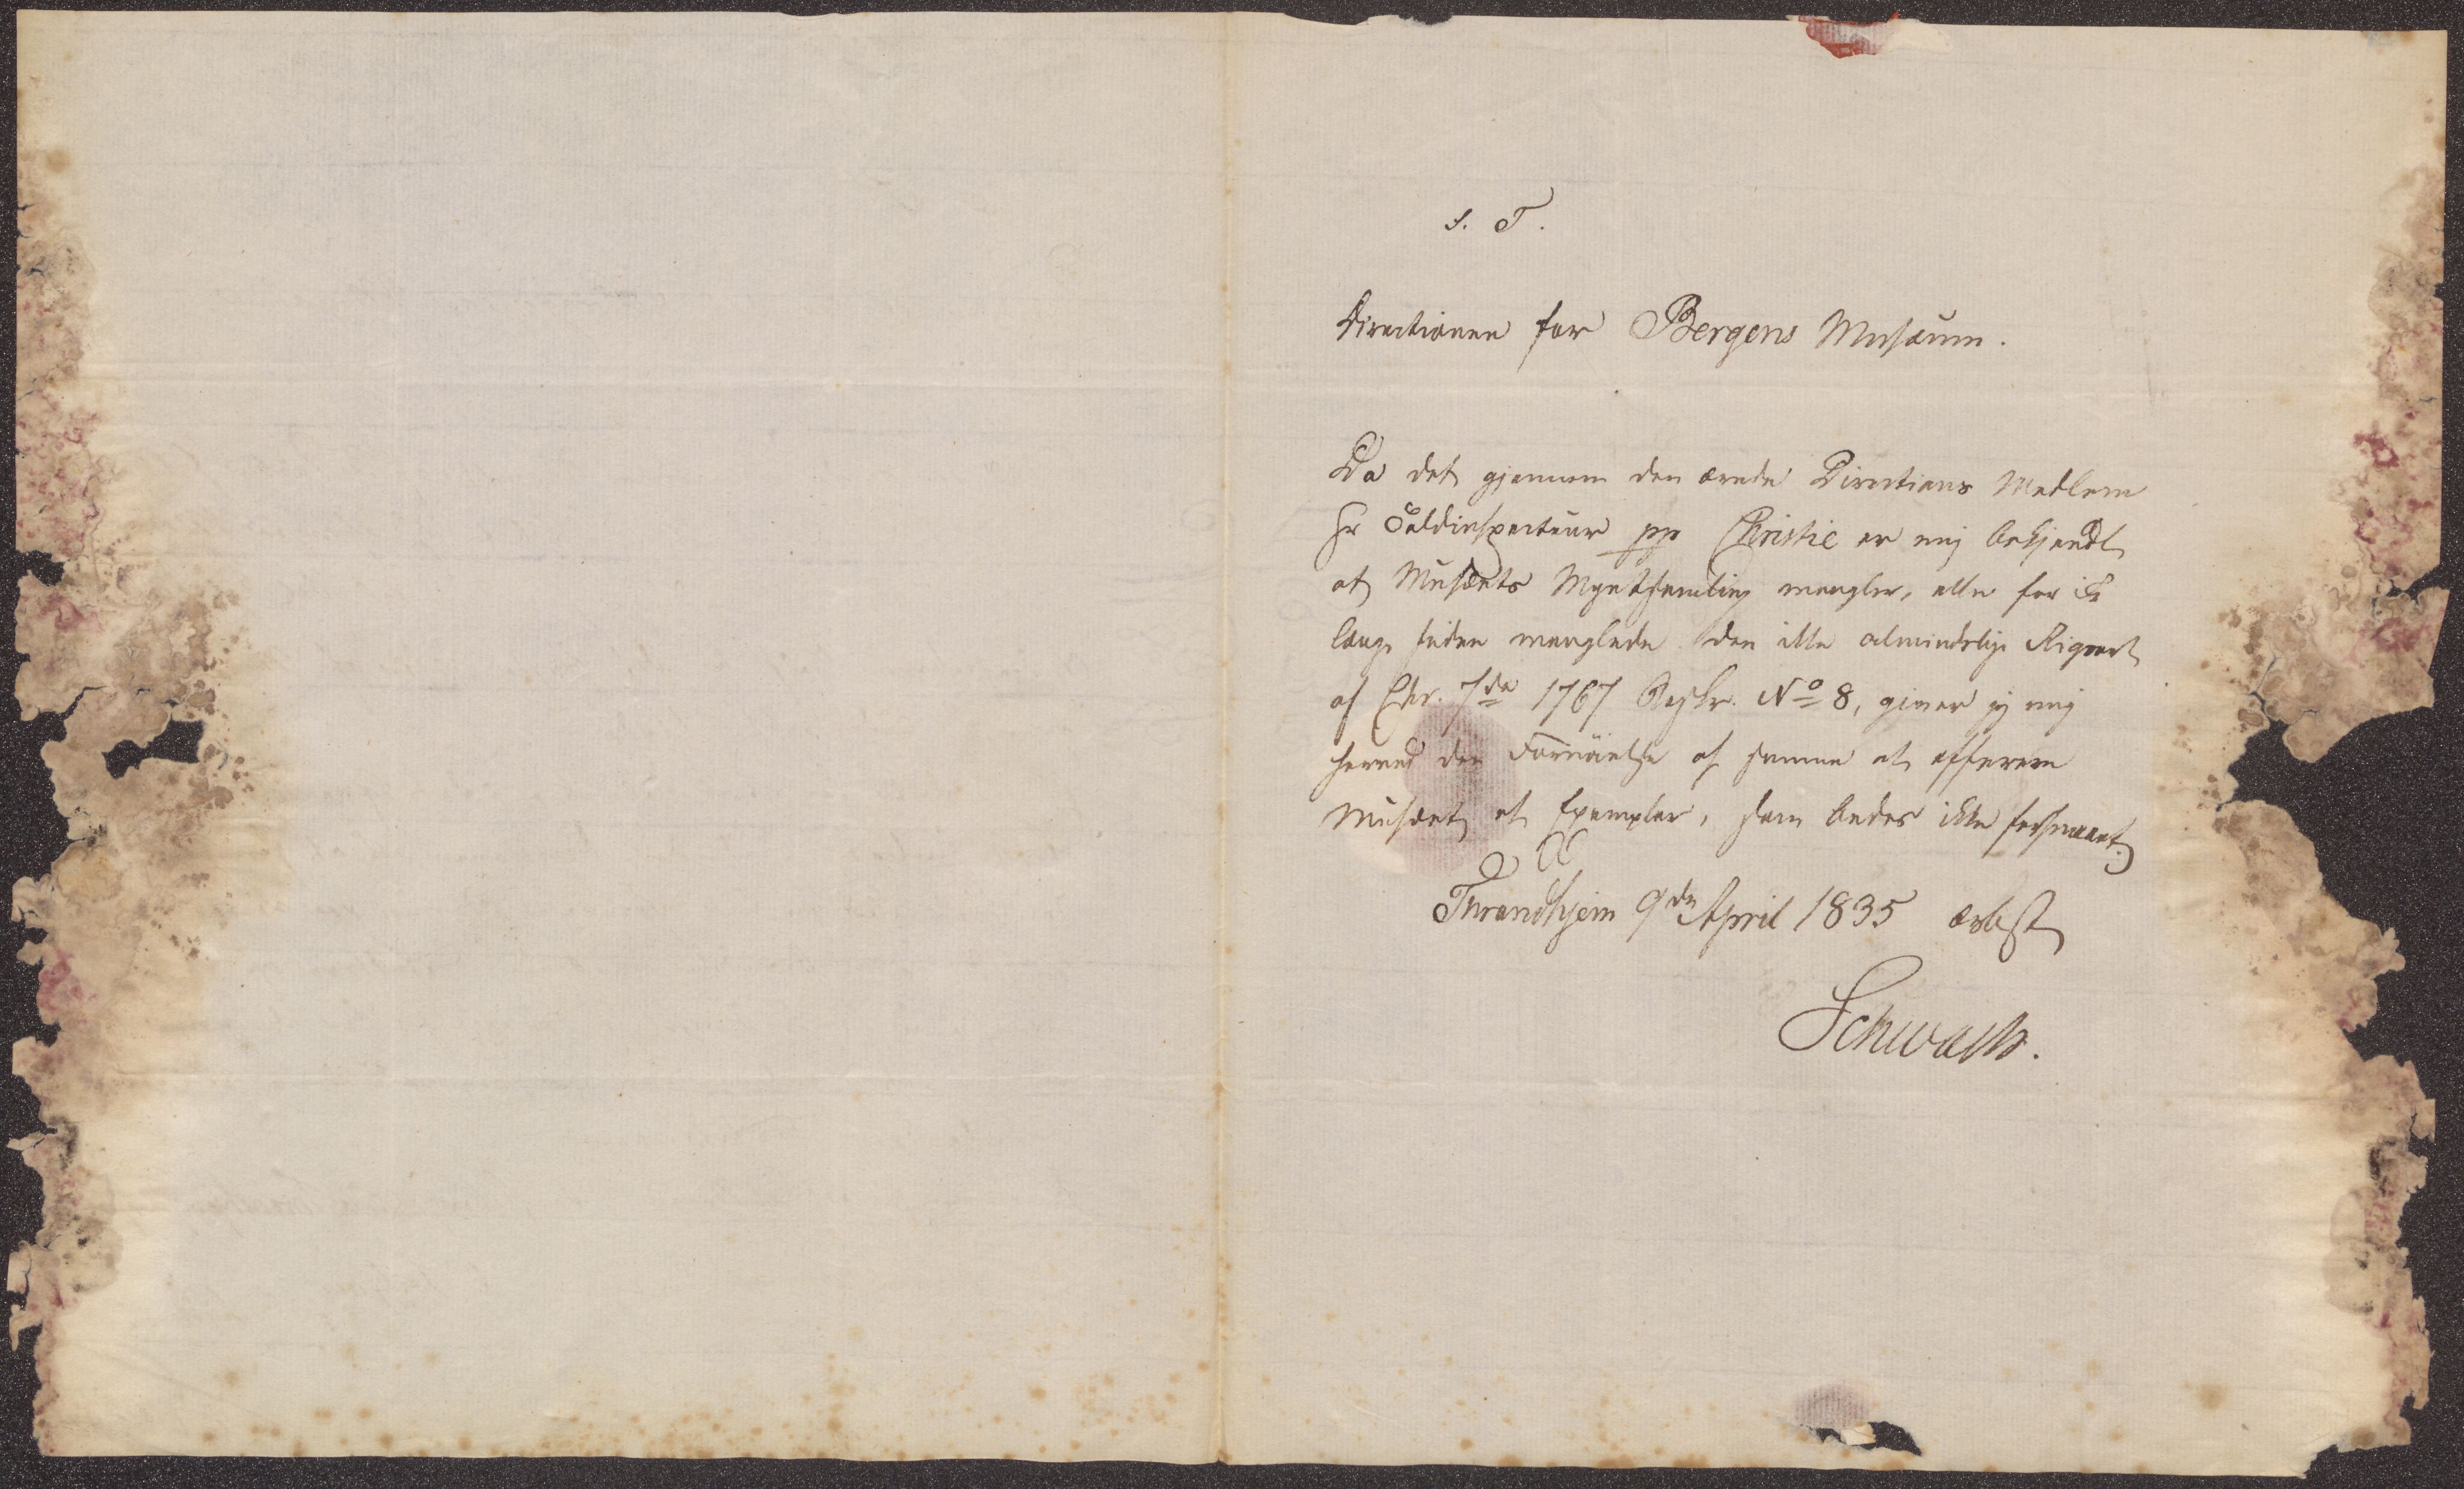 S. T.
Directionen for Bergens Musæum.
Da det gjennem den ærede Directions Medlem
Hr Toldinspecteur pp Christie er mig bekjendt
at Musæets Myntsamling mangler, eller for
længe siden manglede den ikke almindelige Rigsort
af Chr. 7de 1767 Beskr. No 8, giver jeg mig
herved den Fornöielse af samme at offerere
Musæet et Exemplar, som bedes ikke forsmaaet.
Throndhjem 9de April 1835 ærbst
Schwach.